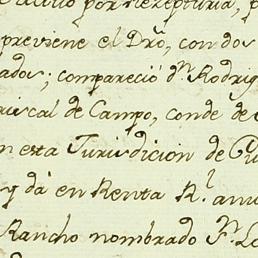 por rezepturia,
previene el Dro, con dos
ados; compareció Dn Rodrig
riscal de Campo, conde de
n esta Jurisdicion de
y dá en Renta Rl anu
Rancho nombrado Sn